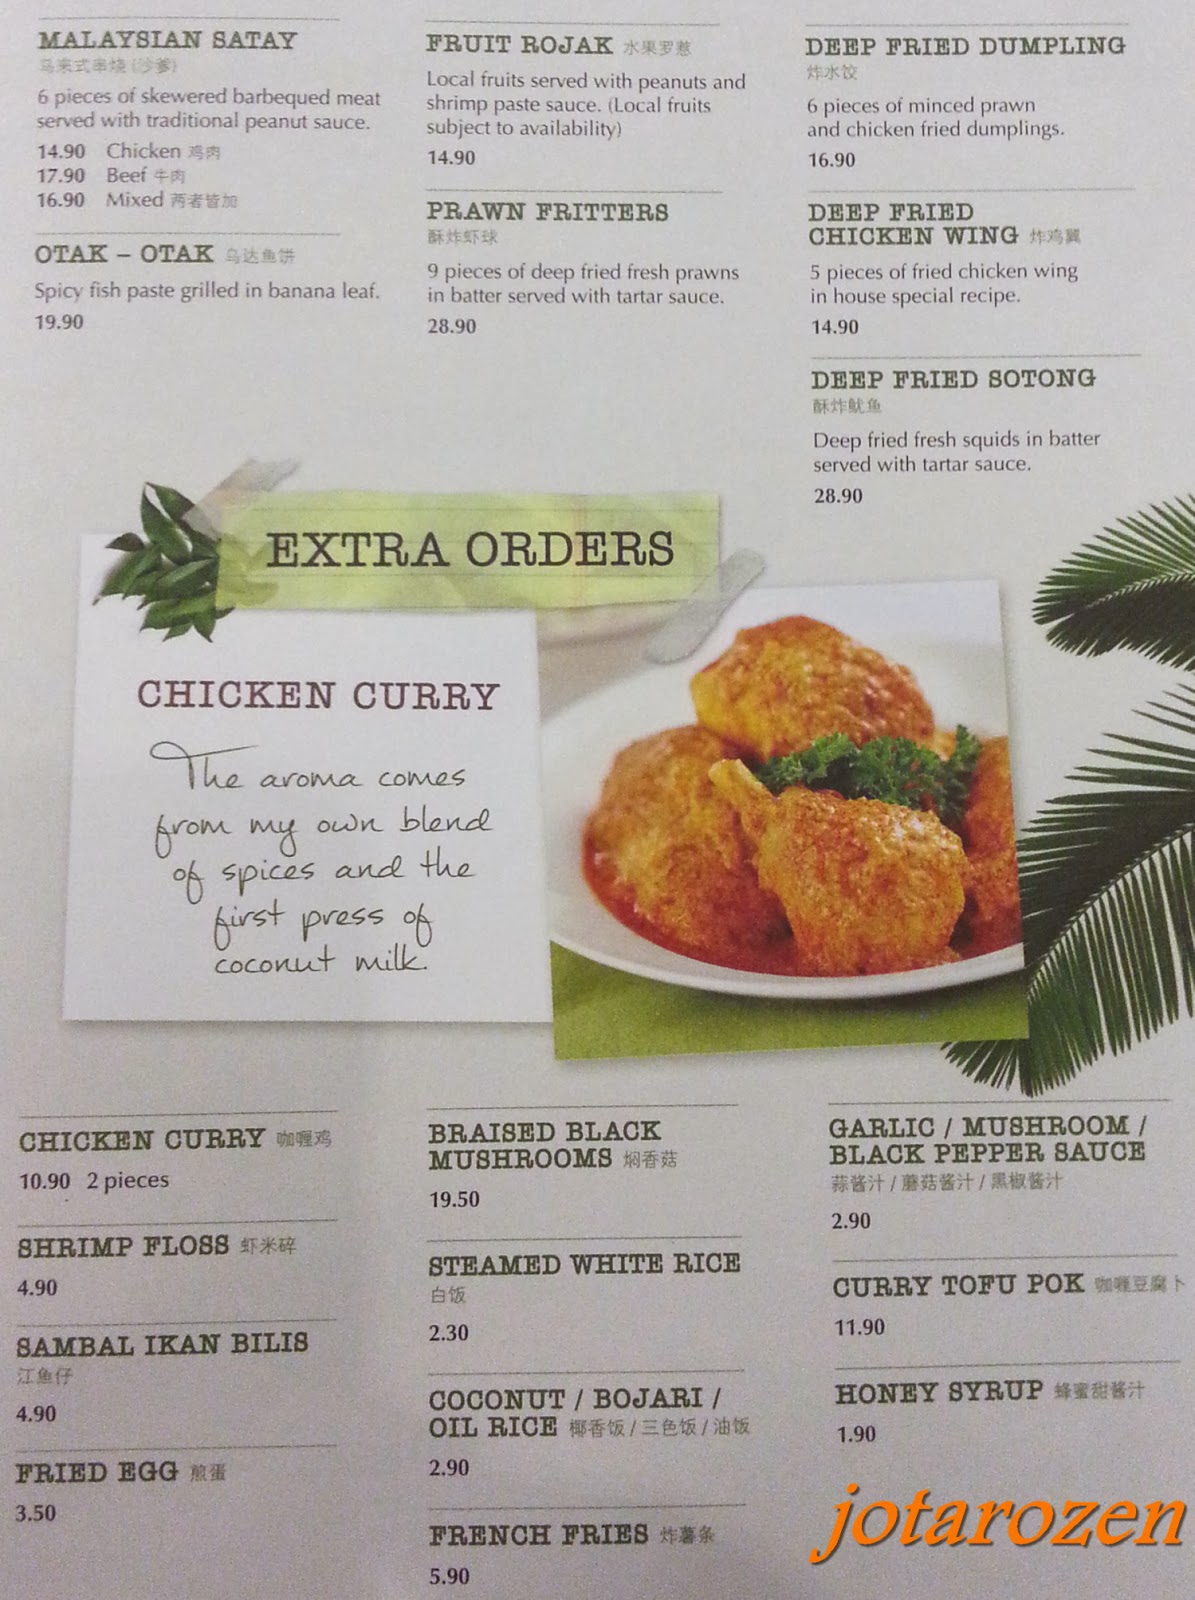 MALAYSIAN SATAY
马来式串烧 (沙爹)
6 pieces of skewered barbequed meat
served with traditional peanut sauce.
14.90 Chicken 鸡肉
17.90 Beef 牛肉
16.90 Mixed 两者皆加
OTAK – OTAK 乌达鱼饼
Spicy fish paste grilled in banana leaf.
19.90
FRUIT ROJAK 水果罗惹
Local fruits served with peanuts and
shrimp paste sauce. (Local fruits
subject to availability)
14.90
PRAWN FRITTERS
酥炸虾球
9 pieces of deep fried fresh prawns
in batter served with tartar sauce.
28.90
DEEP FRIED DUMPLING
炸水饺
6 pieces of minced prawn
and chicken fried dumplings.
16.90
DEEP FRIED
CHICKEN WING 炸鸡翼
5 pieces of fried chicken wing
in house special recipe.
14.90
DEEP FRIED SOTONG
酥炸鱿鱼
Deep fried fresh squids in batter
served with tartar sauce.
28.90
EXTRA ORDERS
CHICKEN CURRY
The aroma comes
from my own blend
of spices and the
first press of
coconut milk.
CHICKEN CURRY 咖喱鸡
10.90 2 pieces
SHRIMP FLOSS 虾米碎
4.90
SAMBAL IKAN BILIS
江鱼仔
4.90
FRIED EGG 煎蛋
3.50
BRAISED BLACK
MUSHROOMS 焖香菇
19.50
STEAMED WHITE RICE
白饭
2.30
COCONUT / BOJARI /
OIL RICE 椰香饭 / 三色饭 / 油饭
2.90
FRENCH FRIES 炸薯条
5.90
GARLIC / MUSHROOM /
BLACK PEPPER SAUCE
蒜酱汁 / 蘑菇酱汁 / 黑椒酱汁
2.90
CURRY TOFU POK 咖喱豆腐卜
11.90
HONEY SYRUP 蜂蜜甜酱汁
1.90
jotarozen